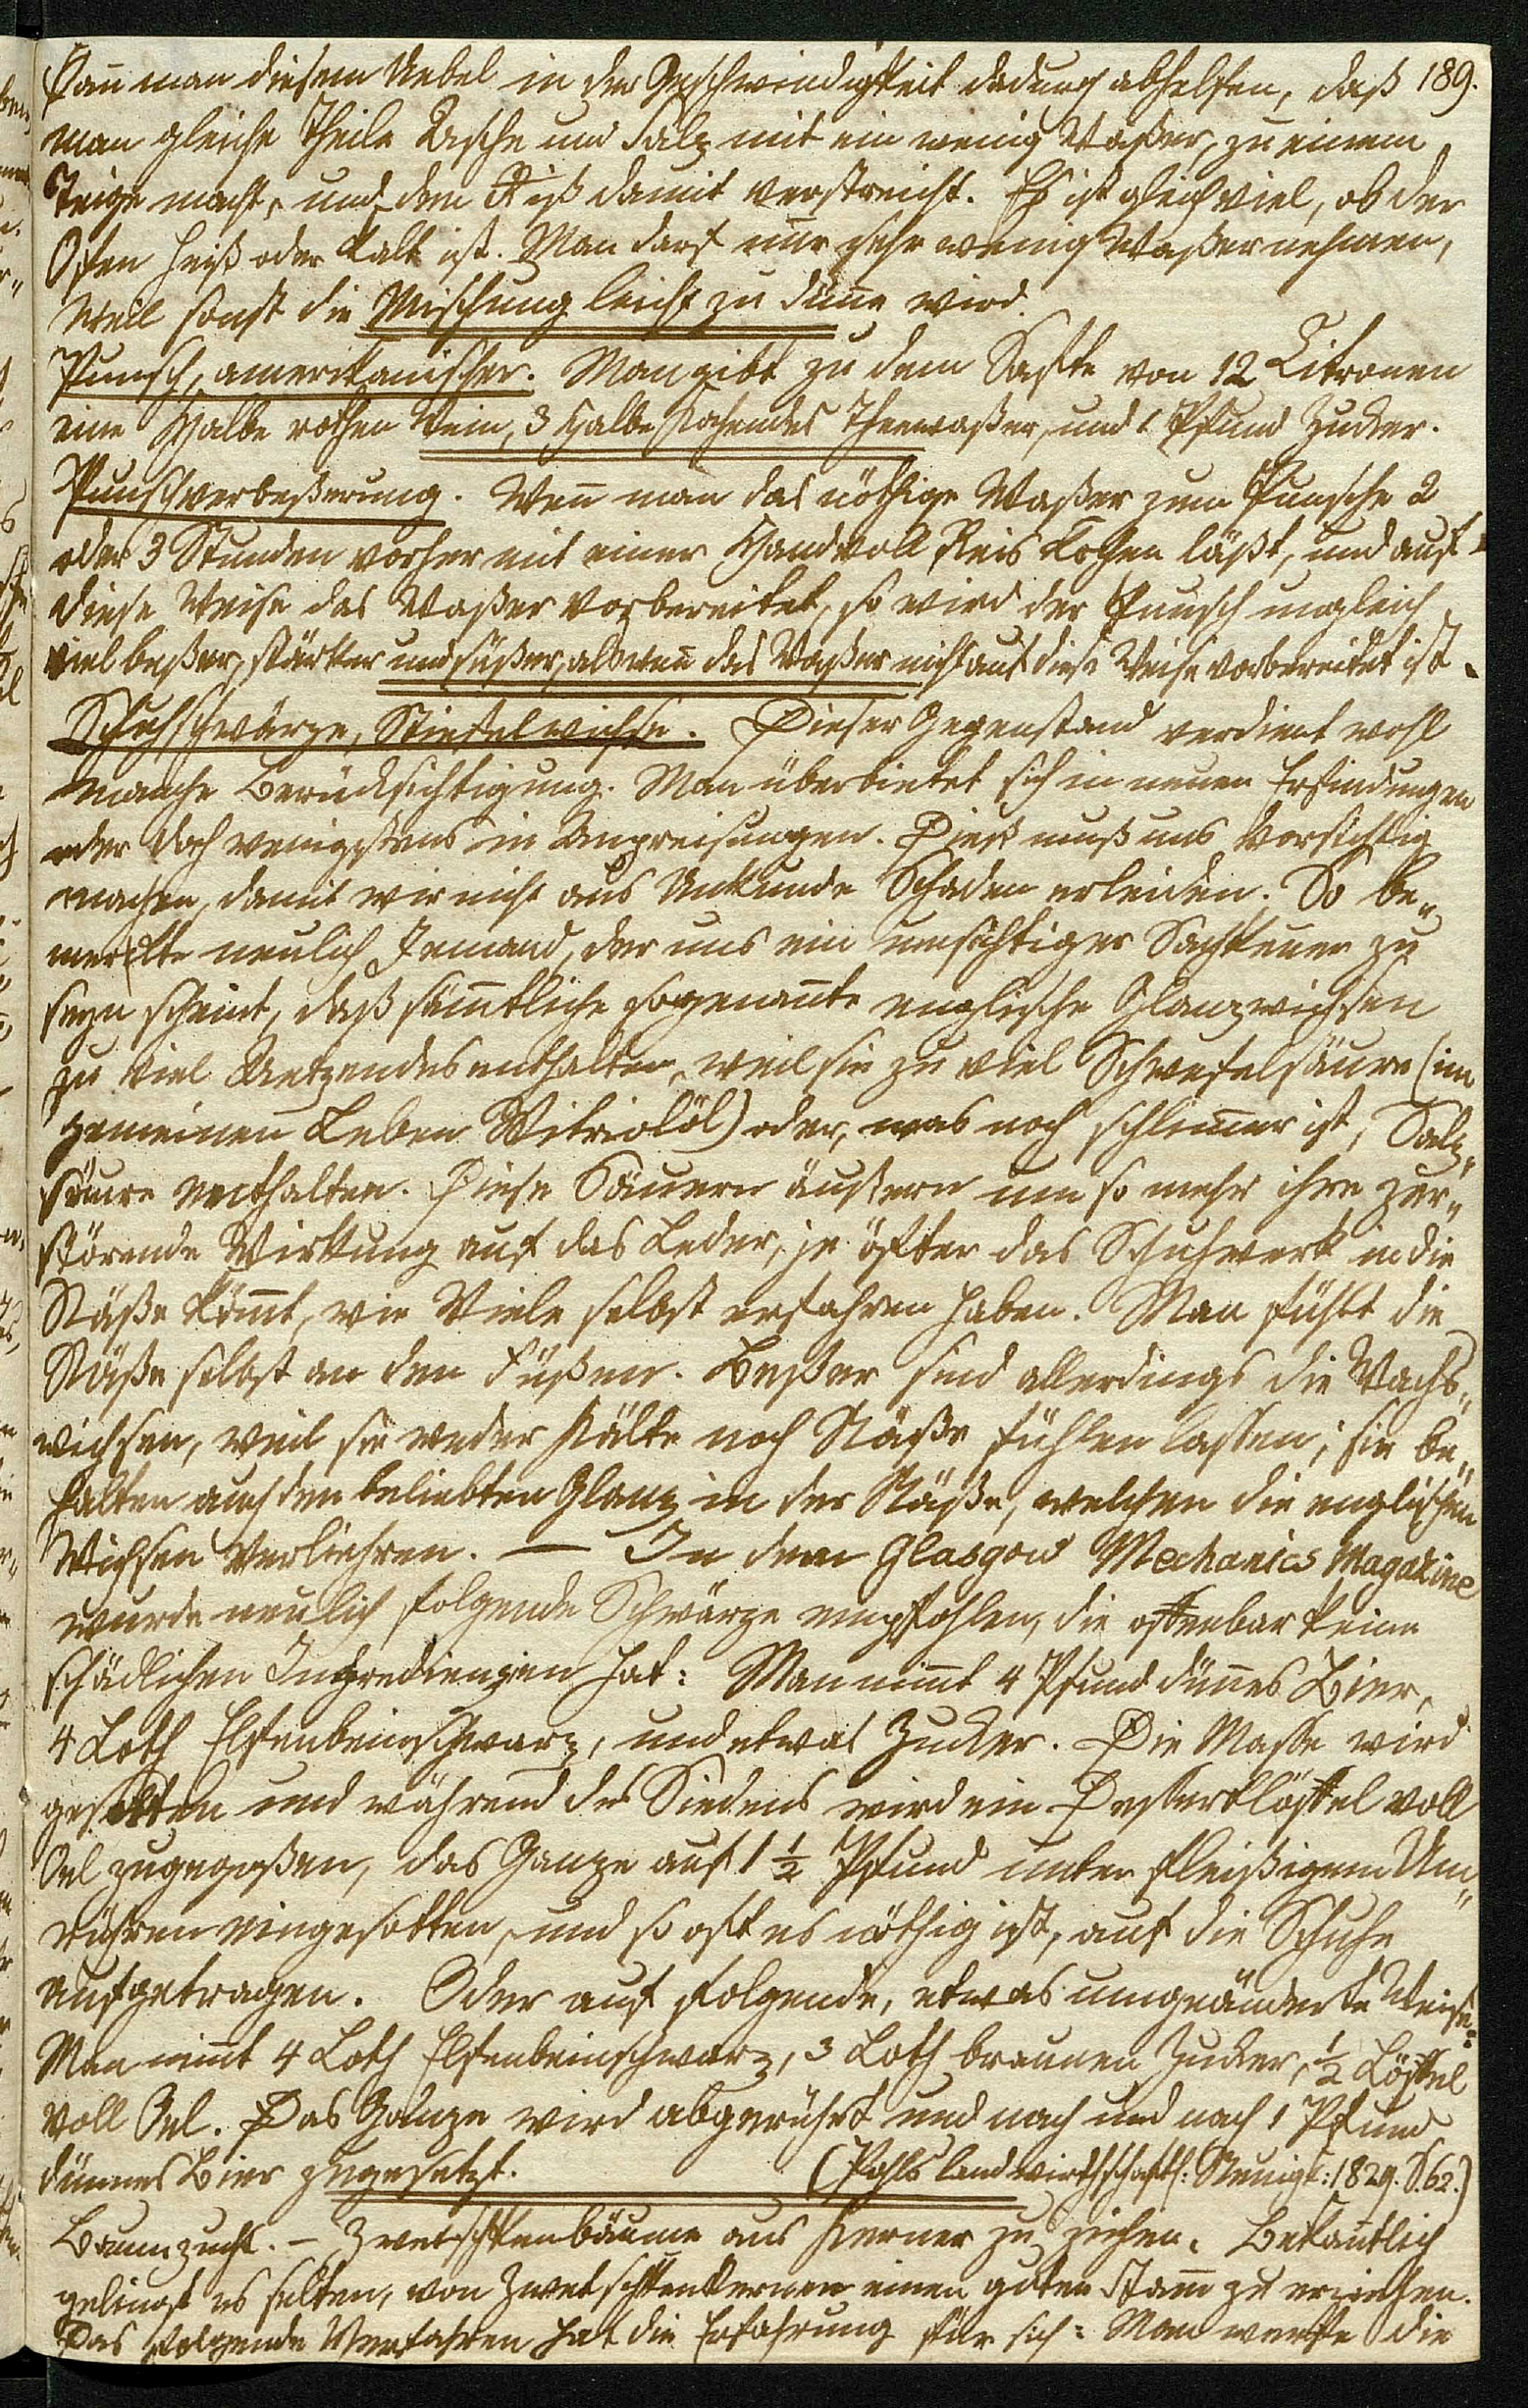 kañ man diesem Uebel in der Geschwindigkeit dadurch abhelfen, daß 189.
man gleiche Theile Asche und Salz mit ein wenig Waßer, zu einem
Teige macht, und den Riß damit verstreicht. Es ist gleichviel, ob der
Ofen heiß oder kalt ist. Man darf nur sehr wenig Waßer nehmen,
weil sonst die Mischung leicht zu düñe wird.
Punsch, amerikanischer. Man gibt zu dem Safte von 12 Citronen
eine Halbe rothen Wein, 3 Halbe kochendes Theewaßer, und 1 Pfund Zucker.
Punschverbeßerung. Weñ man das nöthige Waßer zum Punsche 2
oder 3 Stunden vorher mit einer Handvoll Reis kochen läßt, und auf
diese Weise das Waßer vorbereitet, so wird der Punsch ungleich
viel beßer, stärker und süßer, als weñ das Waßer nicht auf diese Weise vorbereitet ist.
Schuhschwärze, Stiefelwichse. Dieser Gegenstand verdient wohl
manche Berücksichtigung. Man überbietet sich in neuen Erfindungen
oder doch wenigstens in Anpreisungen. Dieß muß uns vorsichtig
machen, damit wir nicht aus Unkunde Schaden erleiden. So be„
merkte neulich Jemand, der uns ein umsichtiger Sachkeñer zu
seyn scheint, daß säm̃tliche sogenañte englische Glanzwichsen
zu viel Aetzendes enthalten, weil sie zu viel Schwefelsäure (im
gemeinen Leben Vitriolöl) oder, was noch schlim̃er ist, Salz„
säure enthalten. Diese Säuern äußern um so mehr ihre zer„
störende Wirkung auf das Leder, je öfter das Schuhwerk in die
Näße köm̃t, wie Viele selbst erfahren haben. Man fühlt die
Näße selbst an den Füßen. Beßer sind allerdings die Wachs„
wichsen, weil sie weder Kälte noch Näße fühlen lassen; sie be„
halten auch den beliebten Glanz in der Näße, welchen die englischen
Wichsen verliehren. — In dem Glasgow Mechanics Magazine
wurde neulich folgende Schwärze empfohlen, die offenbar keine
schädlichen Ingredienzien hat: Man nim̃t 4 Pfund düñes Bier,
4 Loth Elfenbeinschwarz, und etwas Zucker. Die Masse wird
gesotten und während des Siedens wird ein Desserklöffel voll
Oel zugegoßen, das Ganze auf 1 ½ Pfund unter fleißigem Um„
rühren eingesotten, und so oft es nöthig ist, auf die Schuhe
aufgetragen. Oder auf folgende, etwas umgeänderte Weise:
Man nim̃t 4 Loth Elfenbeinschwarz, 3 Loth braunen Zucker, ½ Löffel
voll Oel. Das Ganze wird abgerührt und nach und nach 1 Pfund
dünnes Bier zugesetzt. (Pohls landwirthschaftl: Neuigk: 1829. S. 62.)
Baumzucht. – Zwetschkenbäume aus Kerner zu ziehen. Bekañtlich
gelingt es selten, von Zwetschkenkernen einen guten Stam̃ zu erziehen.
Das folgende Verfahren hat die Erfahrung für sich: Man werfe die